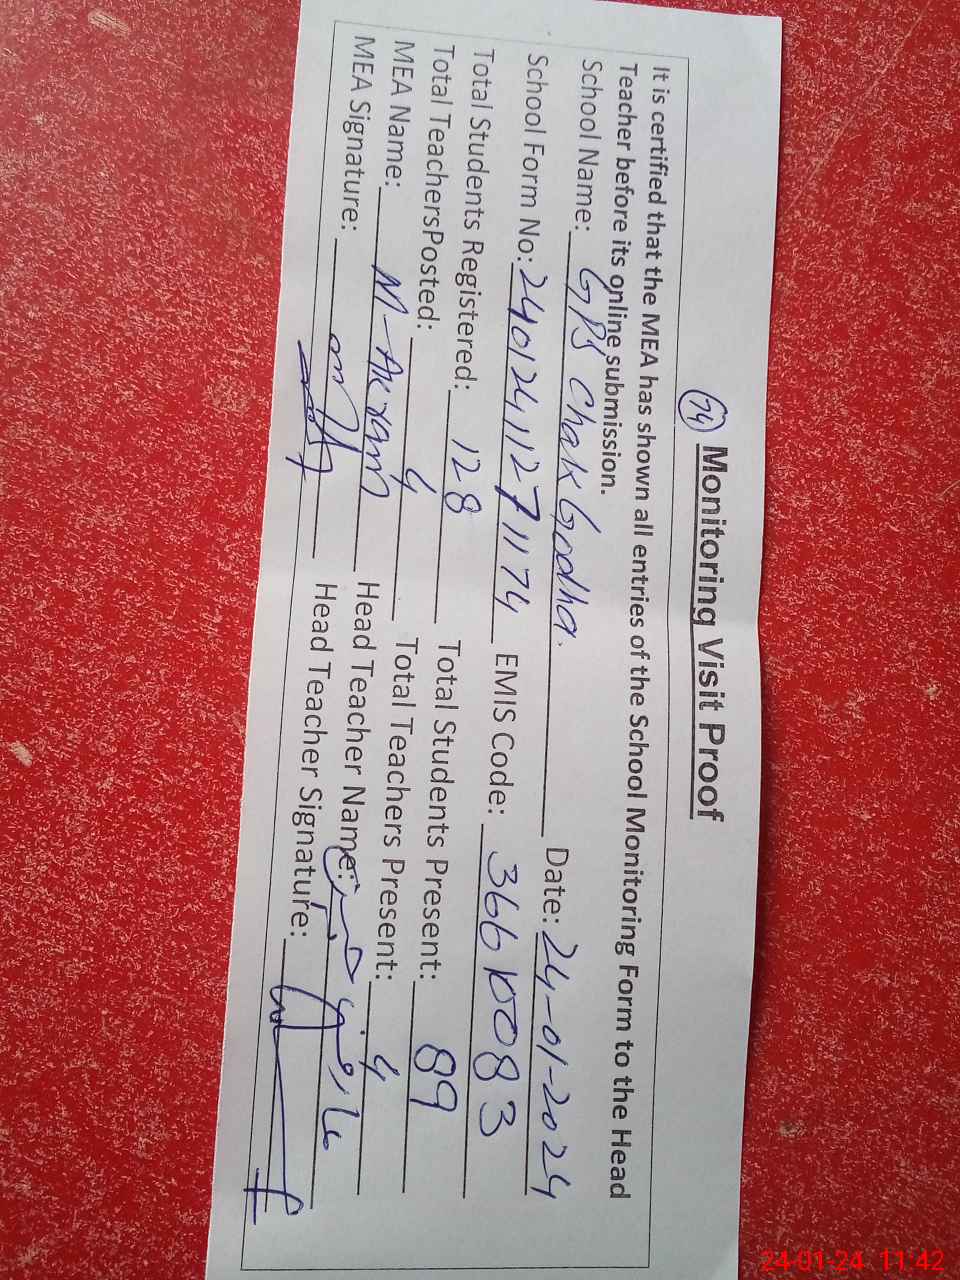 74 Monitoring Visit Proof
It is certified that the MEA has shown all entries of the School Monitoring Form to the Head
Teacher before its online submission.
School Name: GPS Chak Godha. Date: 24-01-2024
School Form No: 2401241127 1174 EMIS Code: 36610083
Total Students Registered: 128 Total Students Present: 89
Total TeachersPosted: 4 Total Teachers Present: 4
MEA Name: M-Akram Head Teacher Name:
MEA Signature: Head Teacher Signature:
24-01-24 11:42